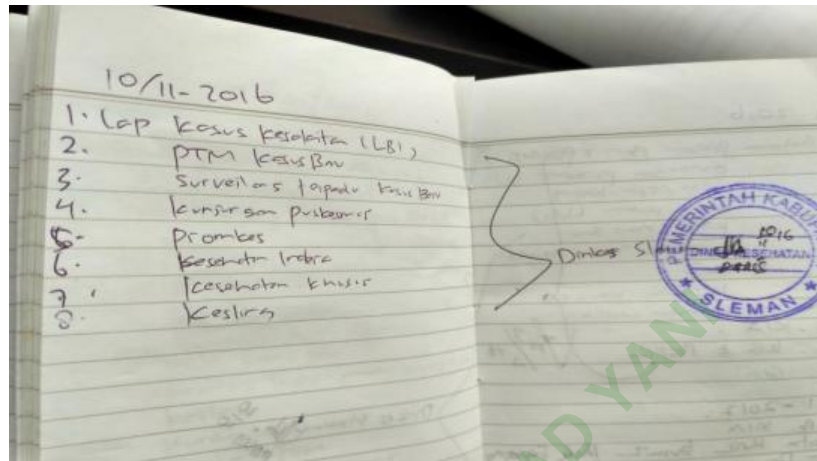 10/11-2016
1. Lap kasus kesakitan (LB1)
2. PTM kasus Baru
3. Surveilans terpadu kasus Baru
4. kunjungan puskesmas
5. Promkes
6. kesehatan Indra
7. kesehatan khusus
8. Kesling
Dinkes Slm
PEMERINTAH KABUP
DINAS KESEHATAN
SLEMAN
AD YANI